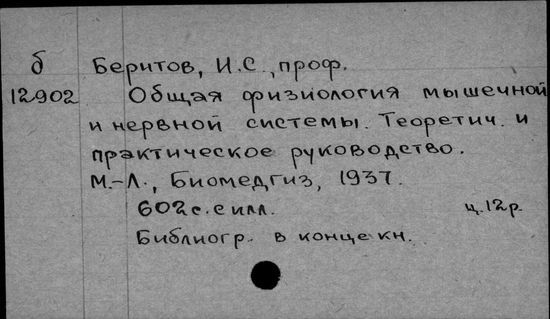 б Беритов, И.С., проф.
12902 Общая физиология мышечной
и нервной системы. Теоретич. и
практическое руководство.
М.-Л., Биомедгиз, 1937.
602с. с илл. ц.12р.
Библиогр. в конце кн.